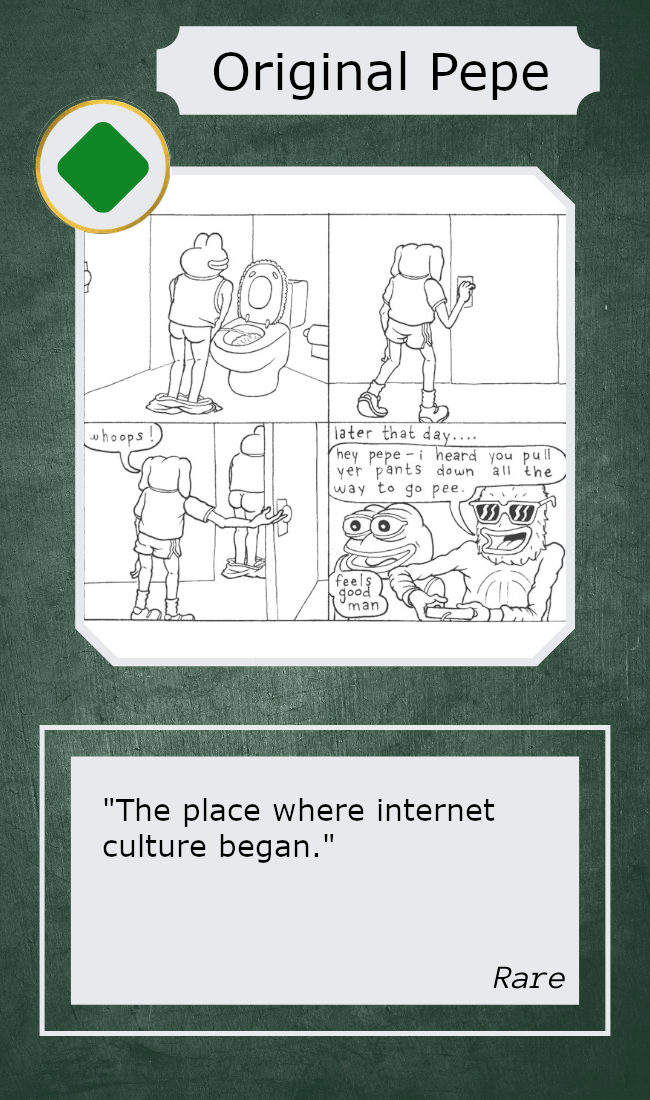 Original Pepe
whoops!
later that day....
hey pepe - i heard you pull
yer pants down all the
way to go pee.
feels
good
man
"The place where internet
culture began."
Rare